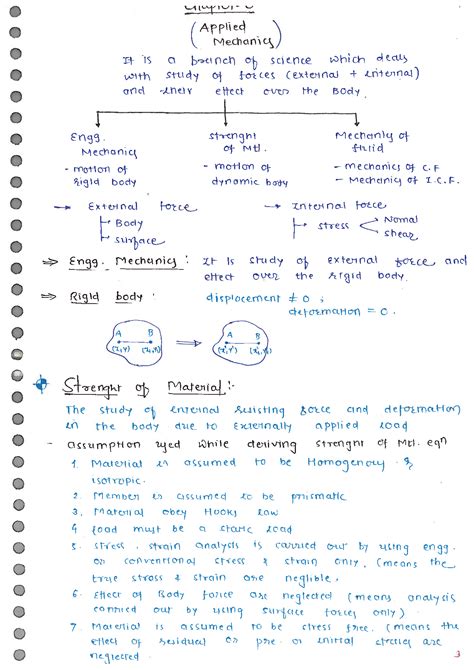 (Applied
Mechanics)
It is a branch of science which deals
with study of forces (external + internal)
and their effect over the Body.
Engg. Mechanics
- motion of rigid body
strenght of Mtl.
- motion of dynamic body
Mechanics of fluid
- mechanics of C.F
- Mechanics of I.C.F.
→ External force
Body
surface
→ Internal force
stress
Normal
shear
⇒ Engg. Mechanics : It is study of external force and
effect over the rigid body.
⇒ Rigid body : displacement ≠ 0 ;
deformation = 0.
A B
A B
Strenght of Material :-
The study of internal resisting force and deformation
in the body due to Externally applied load
- assumption used while deriving strenght of Mtl. eqn
1. Material is assumed to be Homogenous &
isotropic.
2. Member is assumed to be prismatic
3. Material obey Hooks law
4 load must be a static load
5. stress, strain analysis is carried out by using engg.
or conventional stress & strain only. (means the
true stress & strain are neglible.
6. Effect of Body force are neglected (means analysis
carried out by using surface forces only)
7 Material is assumed to be stress free. (means the
effect of residual or pre or initial stresses are
neglected
3